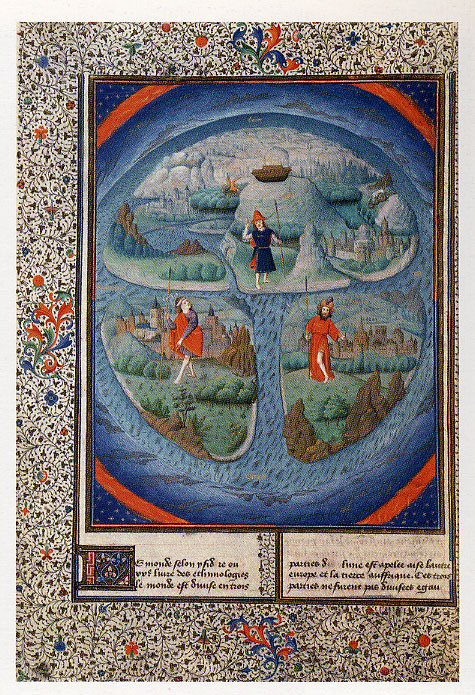 monde selon ysidre ou
liure des ethimologies
monde est diuise en trois
parties lune est apelee aise lautre
europe et la tierce auffrique. Ces trois
parties ne furent pas diuisees egau